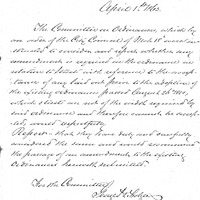 April 1st 1863.
The Committee on Ordinances, which by
an order of the City Council of March 18th were in-
structed to consider and report whether any
amendment is required in the ordinance in
relation to streets with reference to the accept-
ance of any laid out prior to the adoption of
the existing ordinance passed August 26th
which streets are not of the width required by
said ordinance and therefore cannot be accept-
ed, would respectfully
Report - that they have duly and carefully
considered the same and would recommend
the passage of an amendment to the existing
Ordinances herewith submitted.
For the Committee,